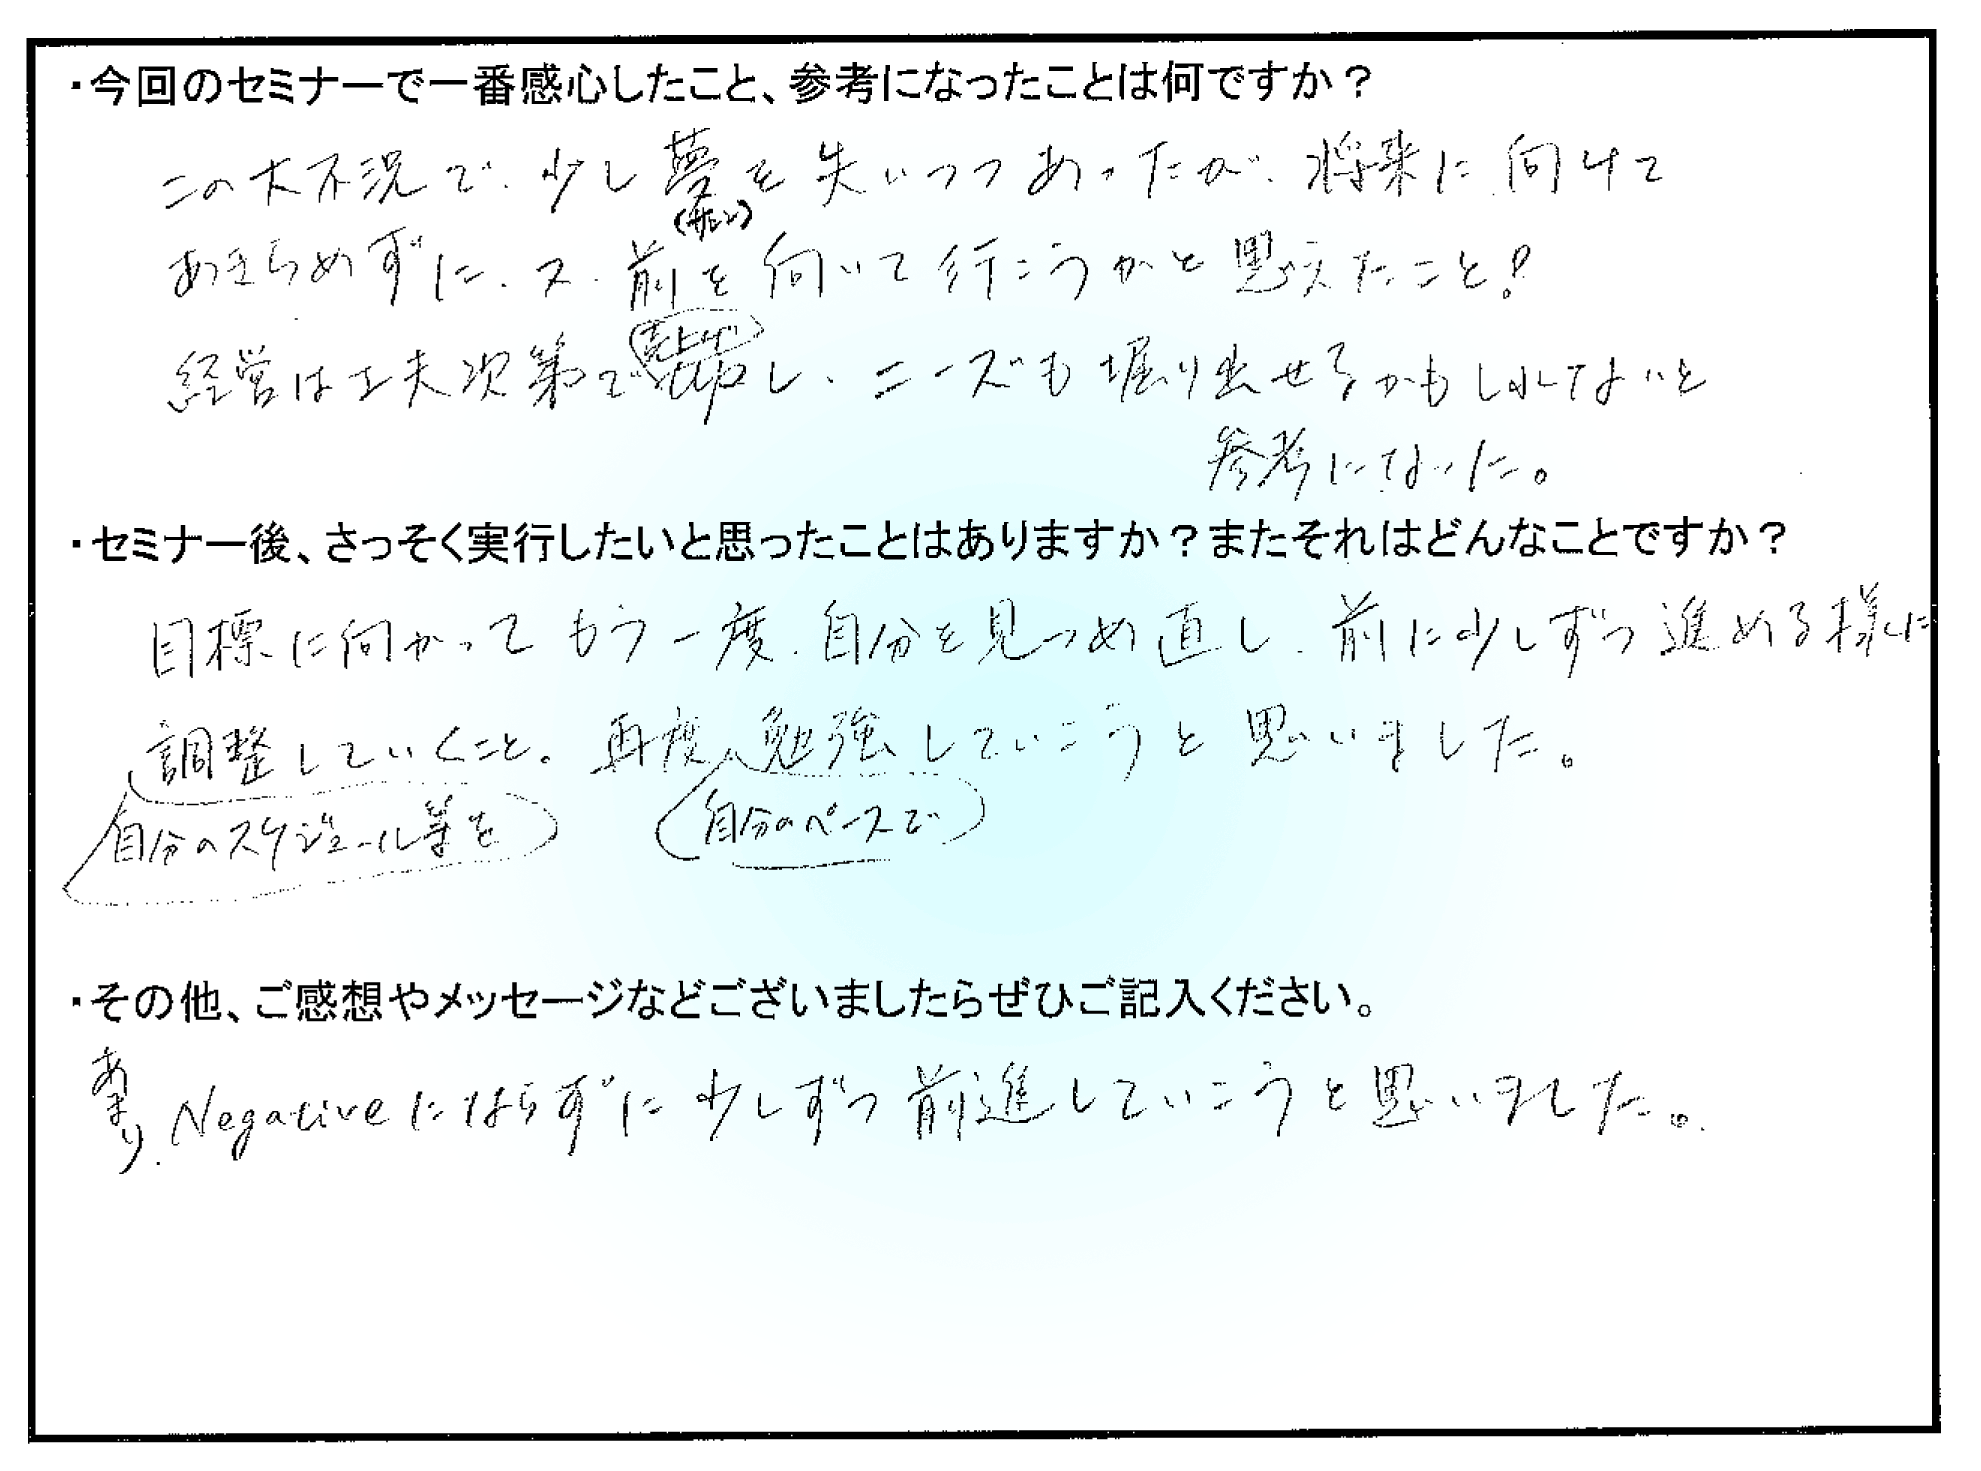 ・今回のセミナーで一番感心したこと、参考になったことは何ですか？
この大不況で、少し夢を失いつつあったが、将来に向けて
あきらめずに、又、前を向いて行こうかと思えたこと！
経営は工夫次第で売上げ し、ニーズも堀り出せるかもしれないと
参考になった。
・セミナー後、さっそく実行したいと思ったことはありますか？またそれはどんなことですか？
目標に向かってもう一度、自分を見つめ直し、前に少しずつ進める様に
調整していくこと。再度、勉強していこうと思いました。
自分のスケジュール等を
自分のペースで
・その他、ご感想やメッセージなどございましたらぜひご記入ください。
あまり、Negativeにならずに少しずつ前進していこうと思いました。